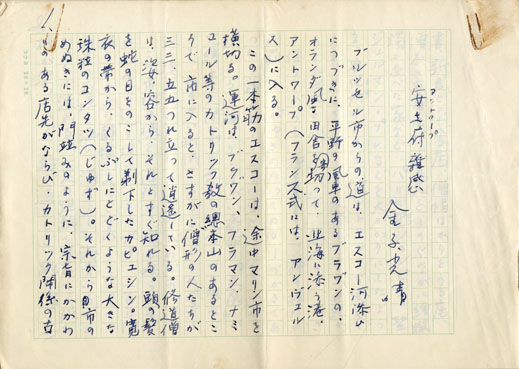 安土府雑感
アントワープ
金子光晴
ブルッセル市からの道は、エスコー河添ひ
につづきに、平野の風車のあるブラブンの、
オランダ風な田舎 つて、北海に添う港、
アントワープ(フランス式には、アンヴェル
ス)に入る。
この一本筋のエスコーは、途中マリン市を
横切る。運河は、ブラブン、フラマン、ナミ
ュール等のカトリック教の総本山のあるとこ
うで、市に入ると、さすがに僧形の人たちが
三三、五五つれ立って逍遥している。修道僧
は、姿、容から、それとすぐ知れる。頭の髪
を蛇の目をのこして剃下したカピュシン。寛
衣の帯から、くるぶしにとどくような大きな
珠粒のコンタツ(じゅず)。それから自市の
めぬきには、門並みのように、宗旨にかかわ
りのある店先がならび、カトリック関係の